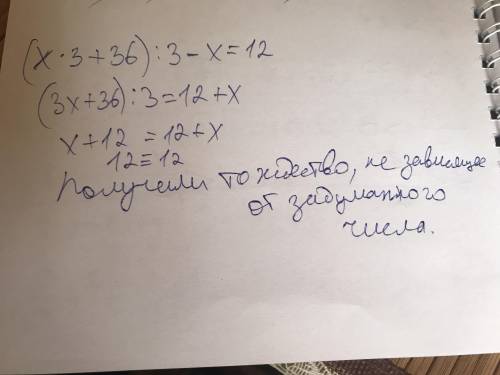 (x·3+36):3-x=12
(3x+36):3=12+x
x+12=12+x
12≡12
Получили тождество, не зависящее
от задуманного
числа.